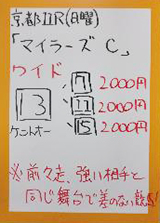 京都11R(日曜)
「マイラーズC」
ワイド
7 2000円
13 11 2000円
ケントオー 15 2000円
※前々走、強い相手と
同じ舞台で差のない競馬!